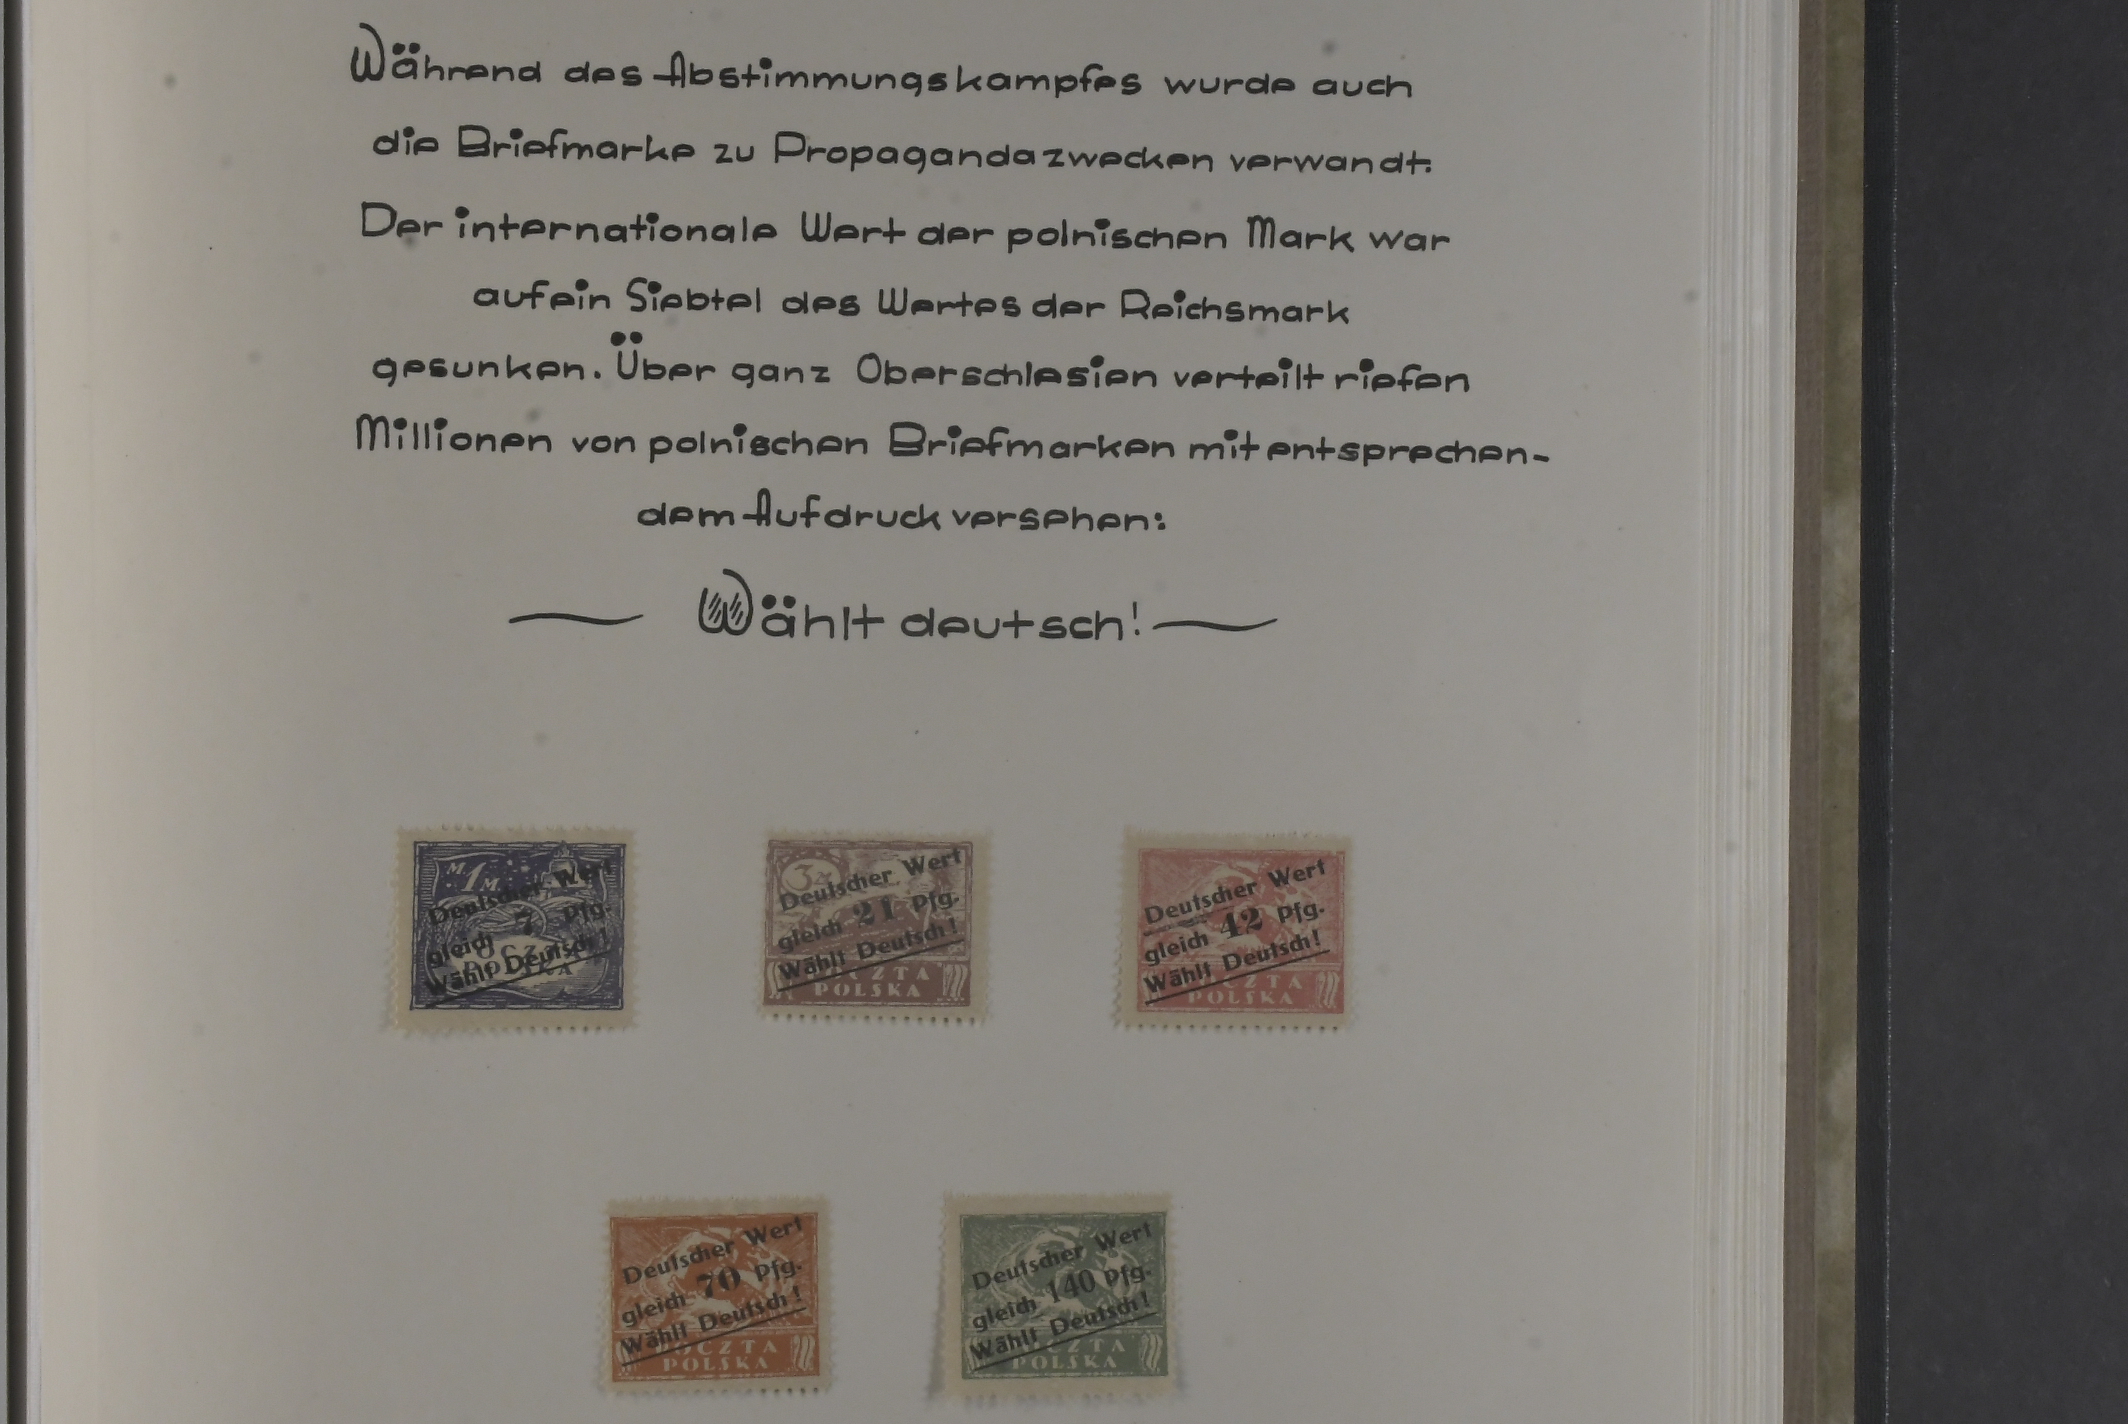 Während des Abstimmungskampfes wurde auch
die Briefmarke zu Propagandazwecken verwandt.
Der internationale Wert der polnischen Mark war
auf ein Siebtel des Wertes der Reichsmark
gesunken. Über ganz Oberschlesien verteilt riefen
Millionen von polnischen Briefmarken mit entsprechen-
dem Aufdruck versehen:
Wählt deutsch!
M 1 M
Deutscher Wert
gleich 7 Pfg.
Wählt Deutsch!
POCZTA
POLSKA
3
Deutscher Wert
gleich 21 Pfg.
Wählt Deutsch!
POCZTA
POLSKA
Deutscher Wert
gleich 42 Pfg.
Wählt Deutsch!
POCZTA
POLSKA
Deutscher Wert
gleich 70 Pfg.
Wählt Deutsch!
POCZTA
POLSKA
Deutscher Wert
gleich 140 Pfg.
Wählt Deutsch!
POCZTA
POLSKA